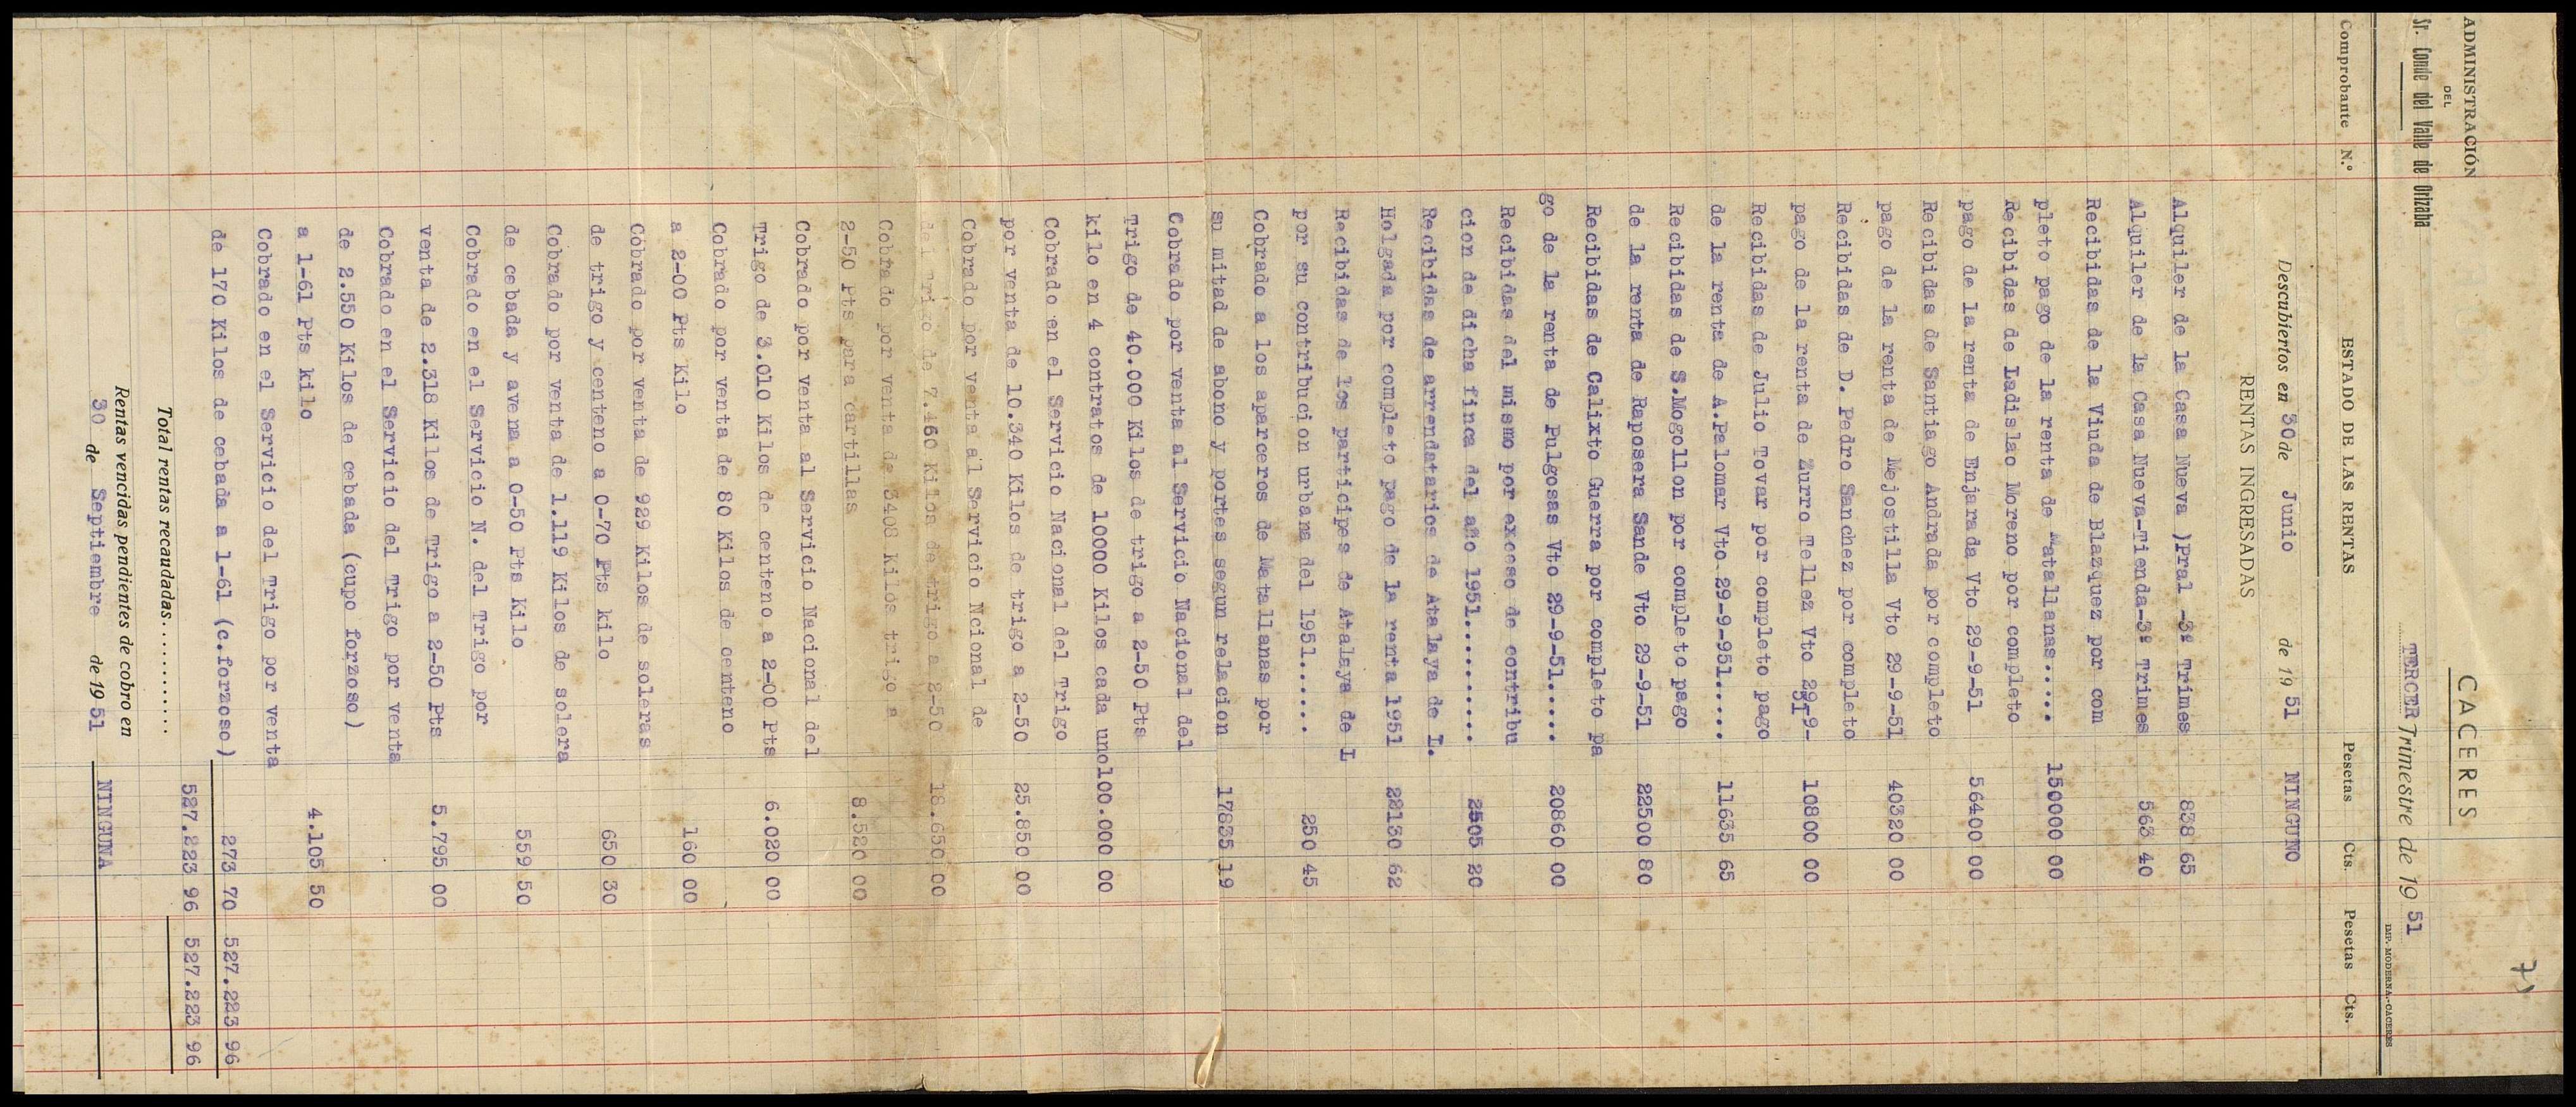 7)
ADMINISTRACIÓN
DEL
Sr. Conde del Valle de Orizaba
CACERES
TERCER Trimestre de 19 51
IMP. MODERNA.-CACERES
Comprobante N.º ESTADO DE LAS RENTAS Pesetas Cts. Pesetas Cts.
Descubiertos en 30 de Junio de 19 51 NINGUNO
RENTAS INGRESADAS
Alquiler de la Casa Nueva )Pral -3º Trimes 838 65
Alquiler de la Casa Nueva-Tienda-3º Trimes 563 40
Recibidas de la Viuda de Blazquez por com
pleto pago de la renta de Matallanas..... 150000 00
Recibidas de Ladislao Moreno por completo
pago de la renta de Enjarada Vto 29-9-51 56400 00
Recibidas de Santiago Andrada por completo
pago de la renta de Mejostilla Vto 29-9-51 40320 00
Recibidas de D. Pedro Sanchez por completo
pago de la renta de Zurro Tellez Vto 29-9- 10800 00
51
Recibidas de Julio Tovar por completo pago
de la renta de A.Palomar Vto 29-9-951..... 11635 65
Recibidas de S.Mogollon por completo pago
de la renta de Raposera Sande Vto 29-9-51 22500 80
Recibidas de Calixto Guerra por completo pa
go de la renta de Pulgosas Vto 29-9-51..... 20860 00
Recibidas del mismo por exceso de contribu
cion de dicha finca del año 1951.......... 2505 20
Recibidas de arrendatarios de Atalaya de L.
Holgada por completo pago de la renta 1951 22130 62
Recibidas de los participes de Atalaya de L
por su contribucion urbana del 1951...... 250 45
Cobrado a los aparceros de Matallanas por
su mitad de abono y portes segun relacion 17835 19
Cobrado por venta al Servicio Nacional del
Trigo de 40.000 Kilos de trigo a 2-50 Pts
kilo en 4 contratos de 10000 Kilos cada uno 100.000 00
Cobrado en el Servicio Nacional del Trigo
por venta de 10.340 Kilos de trigo a 2-50 25.850 00
Cobrado por venta al Servicio Ncional de
del Trigo de 7.460 Kilos de trigo a 2-50 18.650 00
Cobrado por venta de 3408 Kilos trigo a
2-50 Pts para cartillas 8.520 00
Cobrado por venta al Servicio Nacional del
Trigo de 3.010 Kilos de centeno a 2-00 Pts 6.020 00
Cobrado por venta de 80 Kilos de centeno
a 2-00 Pts Kilo 160 00
Cobrado por venta de 929 Kilos de soleras
de trigo y centeno a 0-70 Pts kilo 650 30
Cobrado por venta de 1.119 Kilos de solera
de cebada y avena a 0-50 Pts Kilo 559 50
Cobrado en el Servicio N. del Trigo por
venta de 2.318 Kilos de Trigo a 2-50 Pts 5.795 00
Cobrado en el Servicio del Trigo por venta
de 2.550 Kilos de cebada (cupo forzoso)
a 1-61 Pts kilo 4.105 50
Cobrado en el Servicio del Trigo por venta
de 170 Kilos de cebada a 1-61 (c.forzoso) 273 70 527.223 96
527.223 96 527.223 96
Total rentas recaudadas............
Rentas vencidas pendientes de cobro en
30 de Septiembre de 19 51 NINGUNA